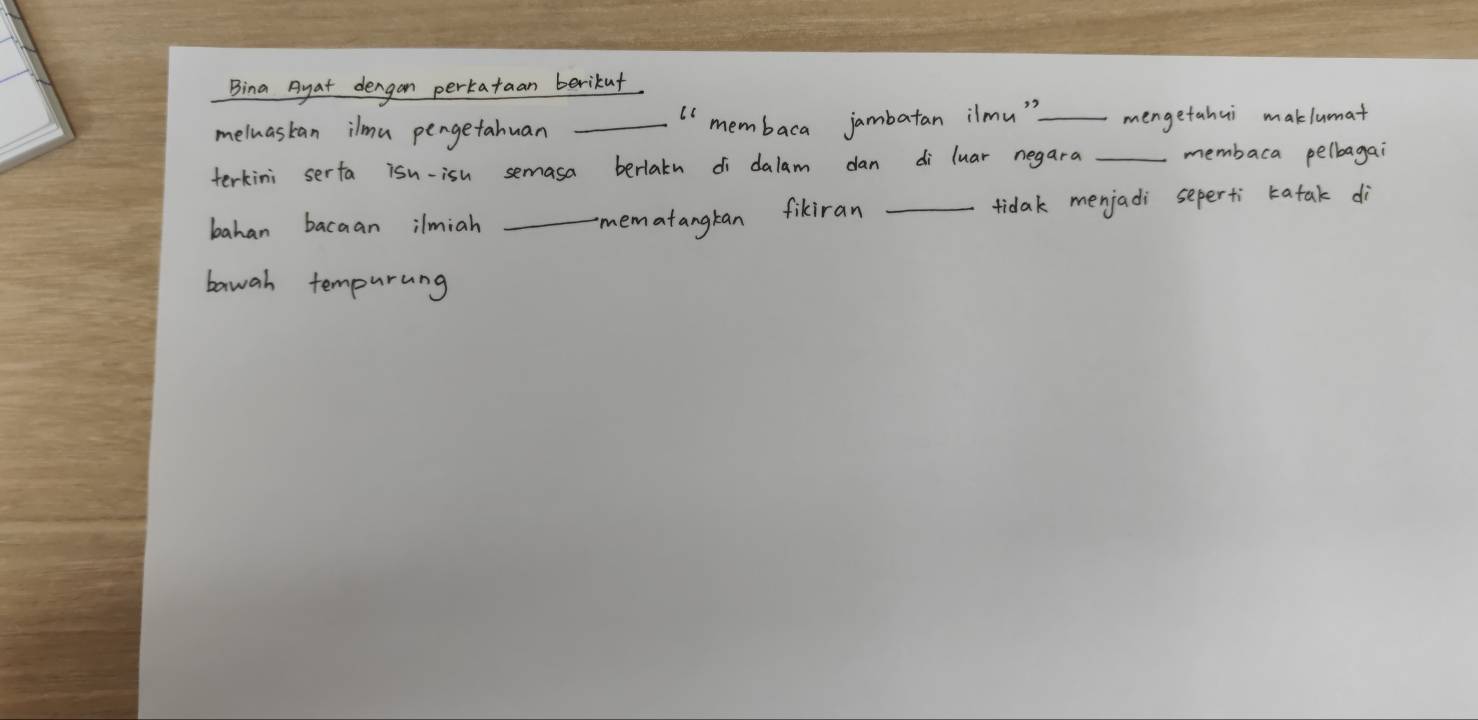 Bina Ayat dengan perkataan berikut
meluaskan ilmu pengetahuan _____ "membaca jambatan ilmu" _____ mengetahui maklumat
terkini serta isu-isu semasa berlaku di dalam dan di luar negara _____ membaca pelbagai
bahan bacaan ilmiah _____ mematangkan fikiran _____ tidak menjadi seperti katak di
bawah tempurung